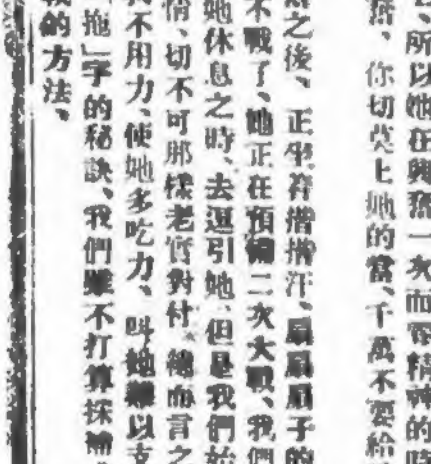 、所以她在興奮一次而耗精神的時
奮、你切莫上她的當、千萬不要給
然之後、正坐着揩揩汗、扇扇扇子的
不戰了、她正在預備二次大戰、我們
她休息之時、去逗引她、但是我們始
情、切不可那樣老實對付、總而言之
我不用力、使她多吃力、叫她難以支
拖」字的秘訣、我們雖不打算採補
戰的方法、